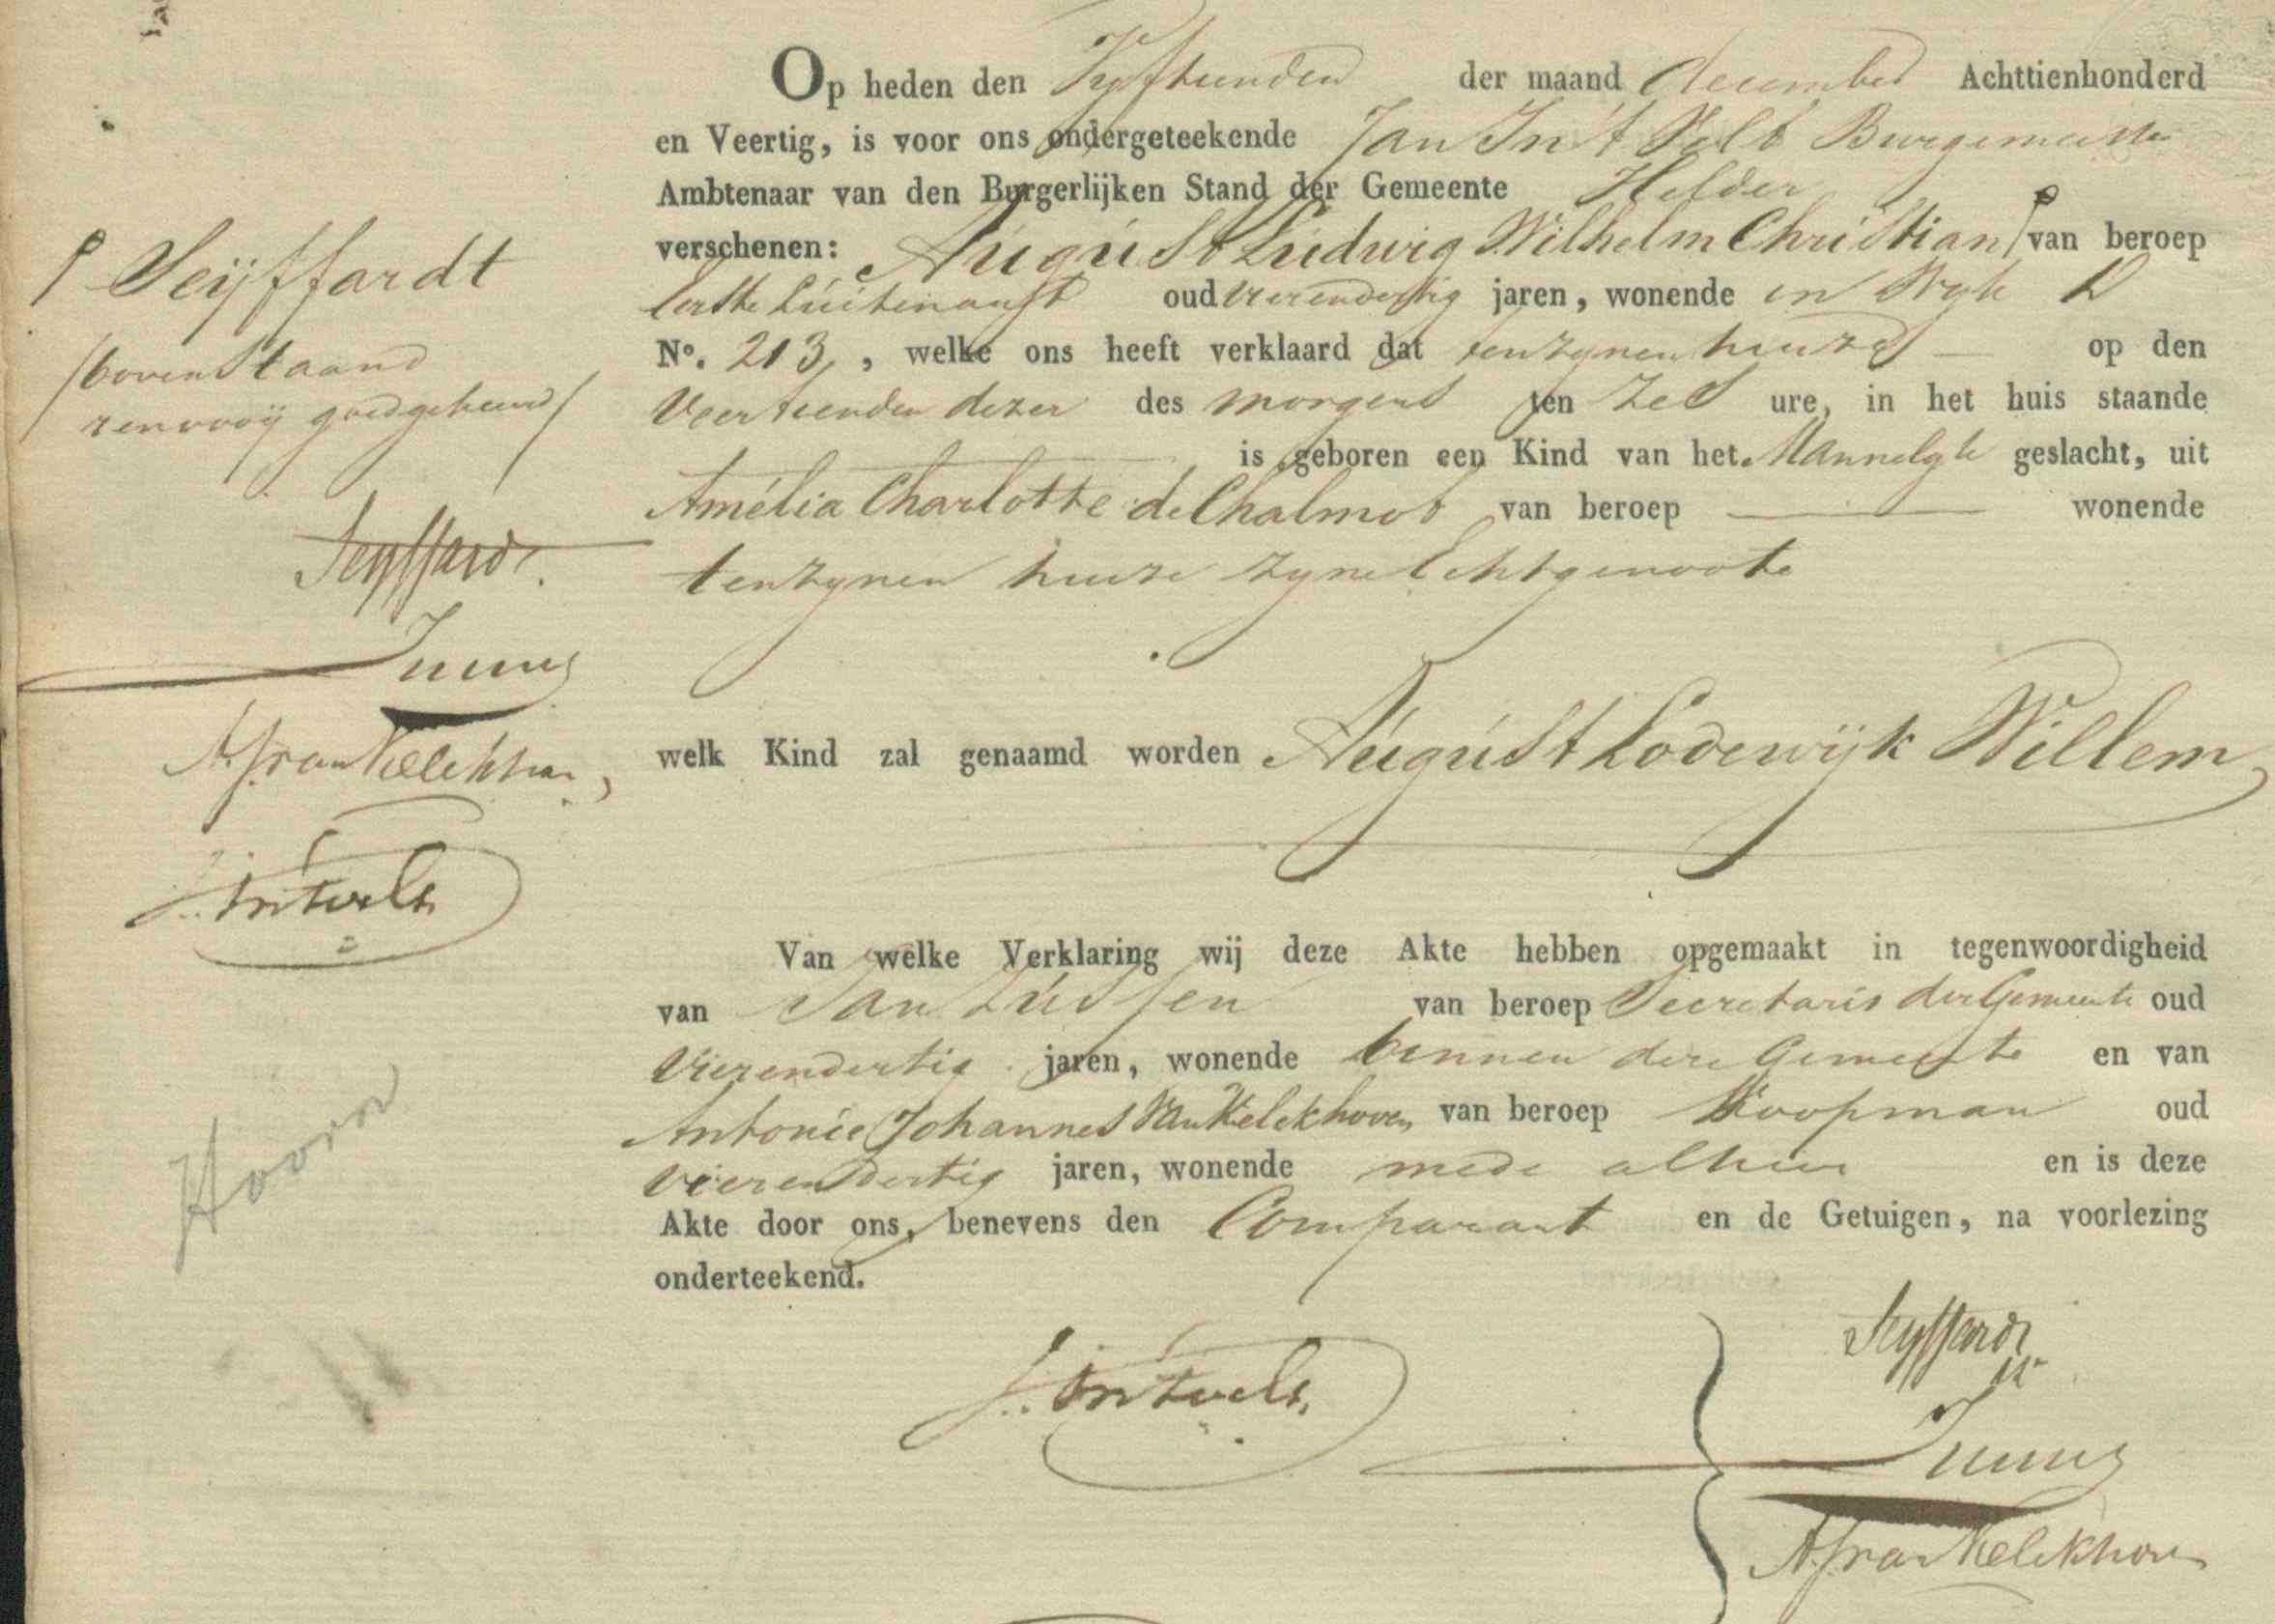 Op heden den Vyftienden der maand december Achttienhonderd
en Veertig, is voor ons ondergeteekende Jan In't Velt Burgemeester
Ambtenaar van den Burgerlijken Stand der Gemeente Helder
verschenen: August Ludwig Wilhelm Christian van beroep
Seijffardt
Eerste Luitenant oud vierendertig jaren, wonende in Wyk D
/bovenstaand
renvooij goedgekeurd/
No. 213, welke ons heeft verklaard dat tenzynen huize op den
Veertienden dezer des morgens ten zes ure, in het huis staande
is geboren een Kind van het Mannelyk geslacht, uit
Amélia Charlotte de Chalmot van beroep wonende
Seyffardt.
tenzynen huize zyne Echtgenoote
welk Kind zal genaamd worden August Lodewijk Willem
AJvanKelckhoven
J. in't velt
Van welke Verklaring wij deze Akte hebben opgemaakt in tegenwoordigheid
van van beroep Secretaris der Gemeente oud
Vierendertig jaren, wonende binnen deze Gemeente en van
Antonie Johannes Van Kelckhoven van beroep Koopman oud
vierendertig jaren, wonende mede alhier en is deze
Hoorn
Akte door ons, benevens den Comparant en de Getuigen, na voorlezing
onderteekend.
Seyffardt
J. in't velt
AJvanKelckhoven